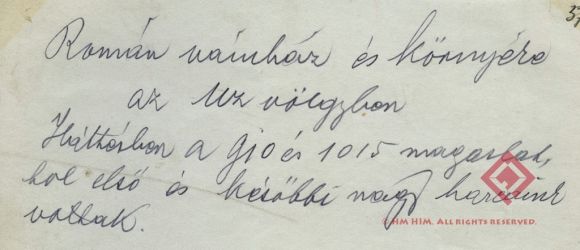 37
Román vámház és környéke
az Uz völgyben
Háttérben a 910 és 1015 magaslat,
hol első és későbbi nagy harcaink
voltak.
© HM HIM. ALL RIGHTS RESERVED.